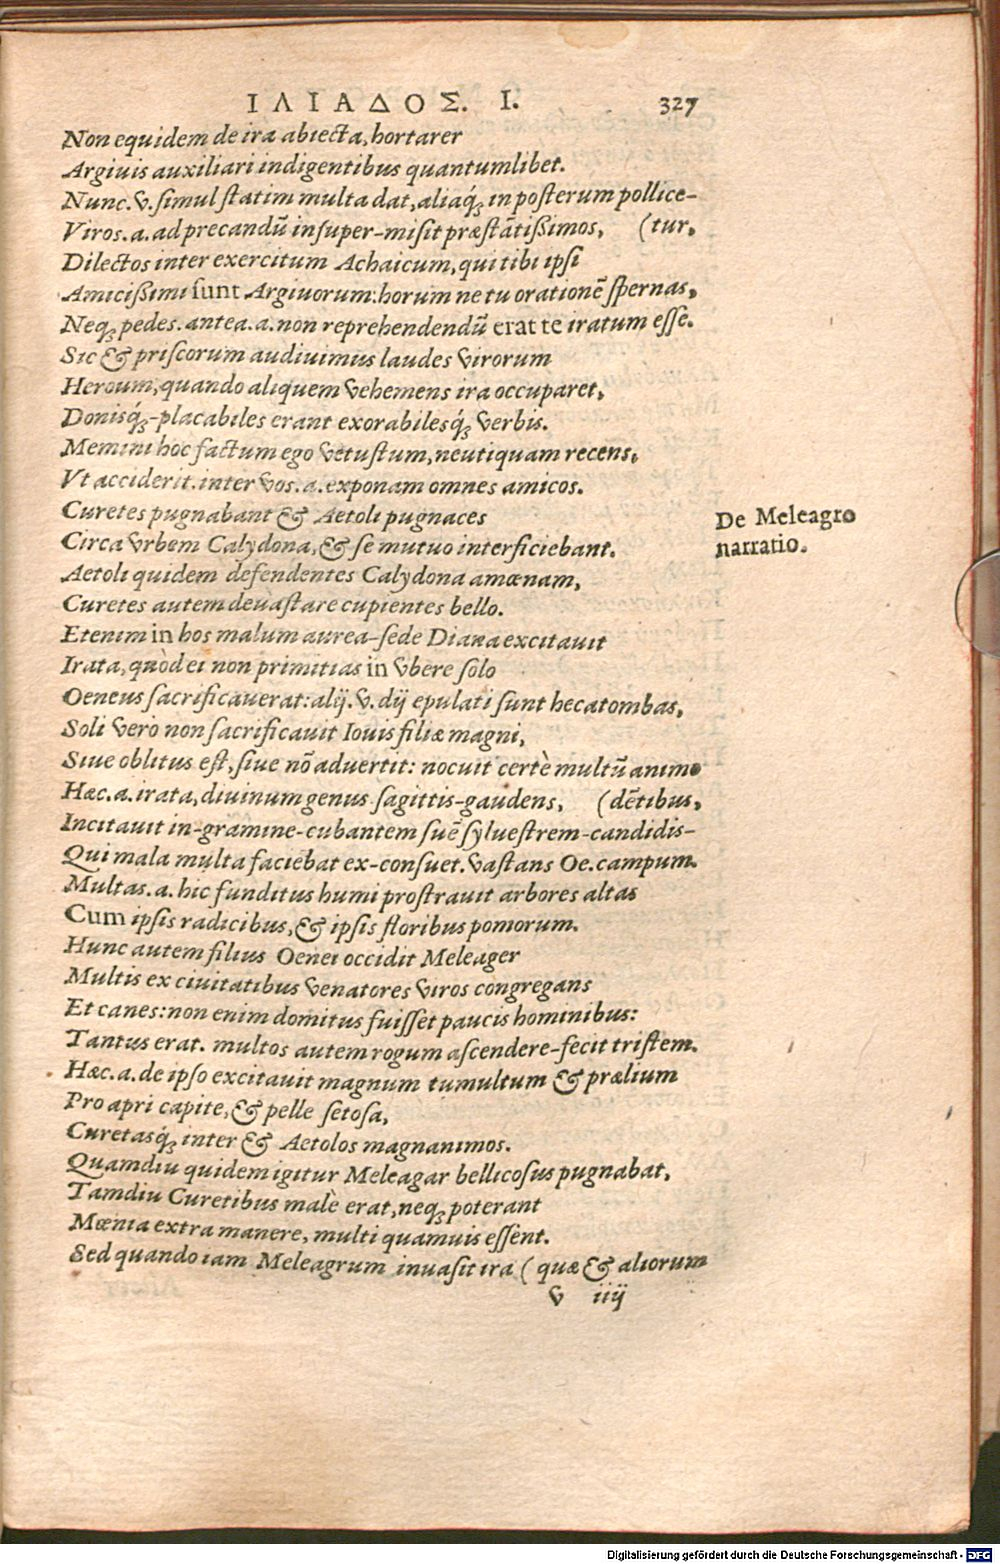 ΙΛΙΑΔΟΣ. Ι. 327
Non equidem de ira abiecta, hortarer
Argiuis auxiliari indigentibus quantumlibet.
Nunc. v. simul statim multa dat, aliaq́; in posterum pollice-
Viros. a. ad precandū insuper-misit præstātißimos, (tur,
Dilectos inter exercitum Achaicum, qui tibi ipsi
Amicißimi sunt Argiuorum: horum ne tu orationē spernas,
Neq; pedes. antea. a. non reprehendendū erat te iratum esse.
Sic & priscorum audiuimus laudes virorum
Heroum, quando aliquem vehemens ira occuparet,
Donisq́;-placabiles erant exorabilesq́; verbis.
Memini hoc factum ego vetustum, neutiquam recens,
Vt acciderit. inter vos. a. exponam omnes amicos.
Curetes pugnabant & Aetoli pugnaces
De Meleagro
narratio.
Circa vrbem Calydona, & se mutuo interficiebant.
Aetoli quidem defendentes Calydona amœnam,
Curetes autem deuastare cupientes bello.
Etenim in hos malum aurea-sede Diana excitauit
Irata, quòd ei non primitias in vbere solo
Oeneus sacrificauerat: alij. v. dij epulati sunt hecatombas,
Soli verò non sacrificauit Iouis filiæ magni,
Siue oblitus est, siue nō aduertit: nocuit certè multū animo
Hæc. a. irata, diuinum genus sagittis-gaudens, (dētibus,
Incitauit in-gramine-cubantem suē syluestrem-candidis-
Qui mala multa faciebat ex-consuet. vastans Oe. campum.
Multas. a. hic funditus humi prostrauit arbores altas
Cum ipsis radicibus, & ipsis floribus pomorum.
Hunc autem filius Oenei occidit Meleager
Multis ex ciuitatibus venatores viros congregans
Et canes: non enim domitus fuisset paucis hominibus:
Tantus erat. multos autem rogum ascendere-fecit tristem.
Hæc. a. de ipso excitauit magnum tumultum & prælium
Pro apri capite, & pelle setosa,
Curetasq́; inter & Aetolos magnanimos.
Quamdiu quidem igitur Meleagar bellicosus pugnabat,
Tamdiu Curetibus malè erat, neq; poterant
Mœnia extra manere, multi quamuis essent.
Sed quando iam Meleagrum inuasit ira (quæ & aliorum
v iiij
Digitalisierung gefördert durch die Deutsche Forschungsgemeinschaft - DFG